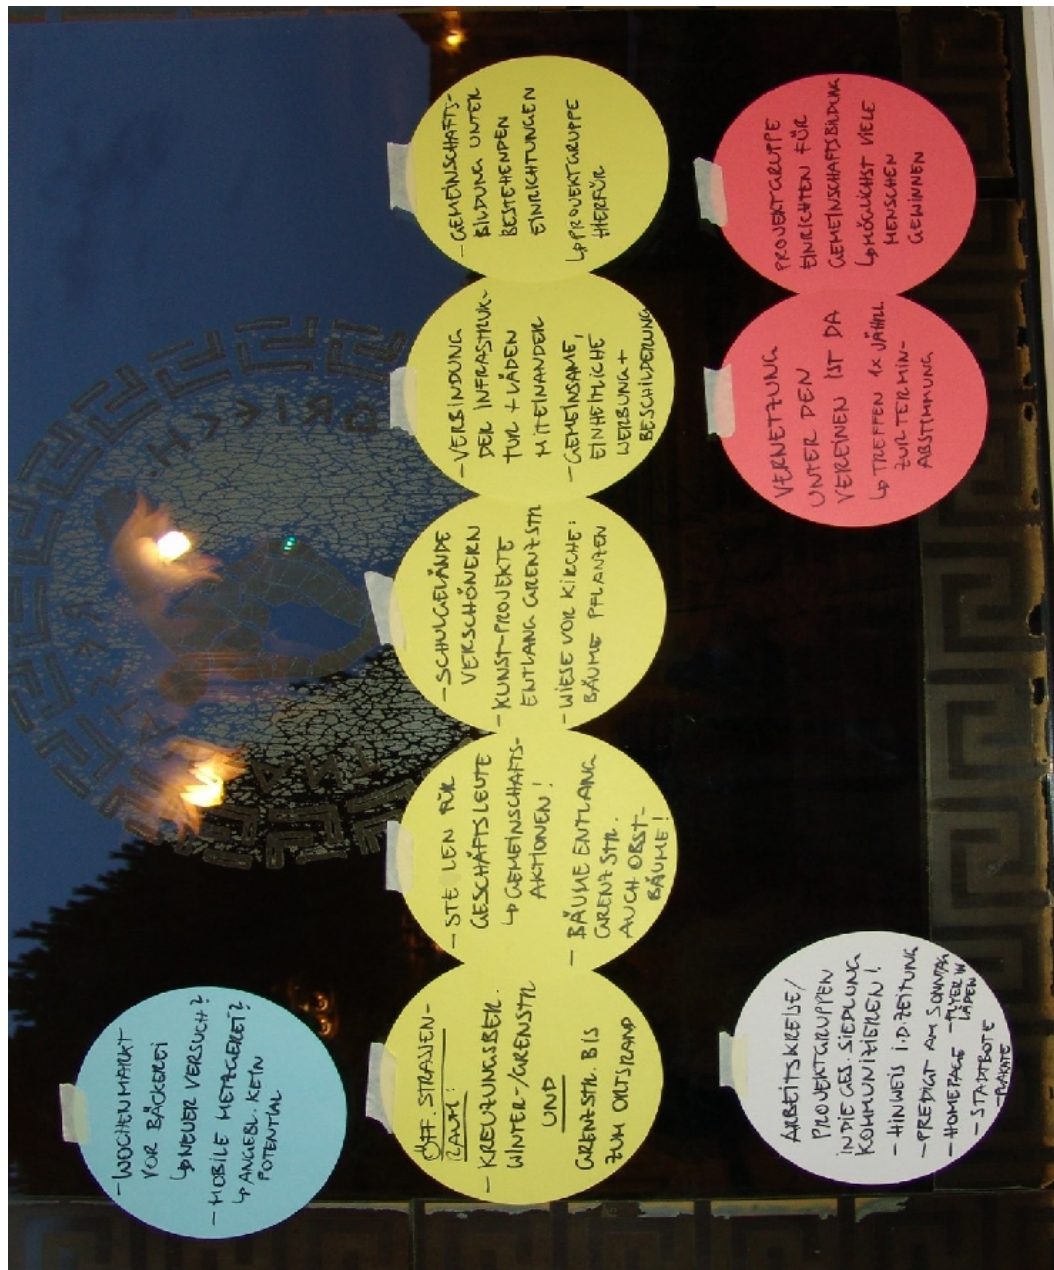 - WOCHENMARKT
VOR BÄCKEREI
↳ NEUER VERSUCH?
- MOBILE METZGEREI?
↳ ANGEBL. KEIN
POTENTIAL
ÖFF. STRAẞEN-
RAUM:
- KREUZUNGSBER.
WINTER-/GRENZSTR
UND
GRENZSTR. BIS
ZUM ORTSRAND
- STE LEN FÜR
GESCHÄFTSLEUTE
↳ GEMEINSCHAFTS-
AKTIONEN!
- BÄUME ENTLANG
GRENZSTR.
AUCH OBST-
BÄUME!
- SCHULGELÄNDE
VERSCHÖNERN
- KUNST-PROJEKTE
ENTLANG GRENZSTR
- WIESE VOR KIRCHE:
BÄUME PFLANZEN
- VERBINDUNG
DER INFRASTRUK-
TUR + LÄDEN
MITEINANDER
- GEMEINSAME,
EINHEITLICHE
WERBUNG +
BESCHILDERUNG
- GEMEINSCHAFTS-
BILDUNG UNTER
BESTEHENDEN
EINRICHTUNGEN
↳ PROJEKTGRUPPE
HIERFÜR
ARBEITSKREISE/
PROJEKTGRUPPEN
IN DIE GES. SIEDLUNG
KOMMUNIZIEREN!
- HINWEIS I.D. ZEITUNG
- PREDIGT AM SONNTAG
- HOMEPAGE - FLYER IN
LÄDEN
- STADTBOTE
- PLAKATE
VERNETZUNG
UNTER DEN
VEREINEN IST DA
↳ TREFFEN 1x JÄHRL
ZUR TERMIN-
ABSTIMMUNG
PROJEKTGRUPPE
EINRICHTEN FÜR
GEMEINSCHAFTSBILDUNG
↳ MÖGLICHST VIELE
MENSCHEN
GEWINNEN